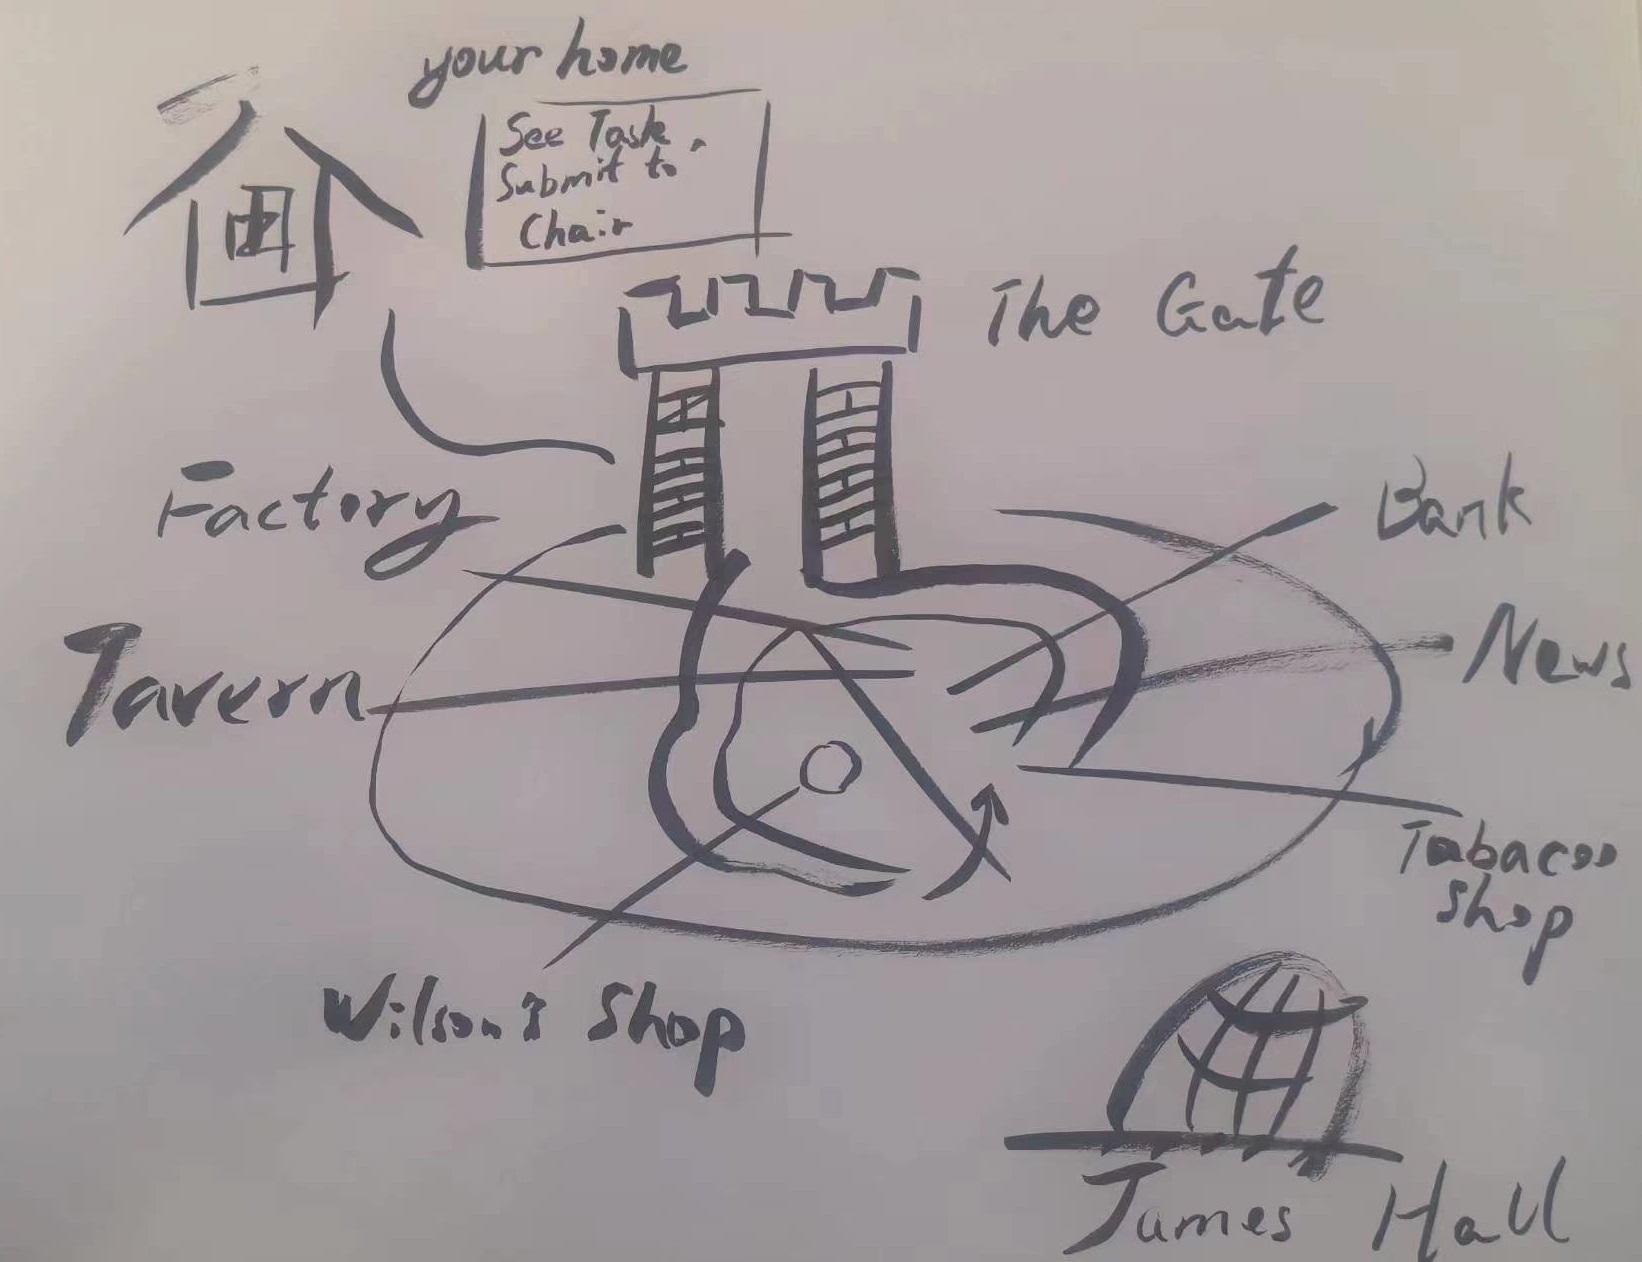 your home
See Task,
Submit to
Chair
The Gate
Factory
Bank
Tavern
News
Tabacoo
Shop
Wilson's Shop
James Hall